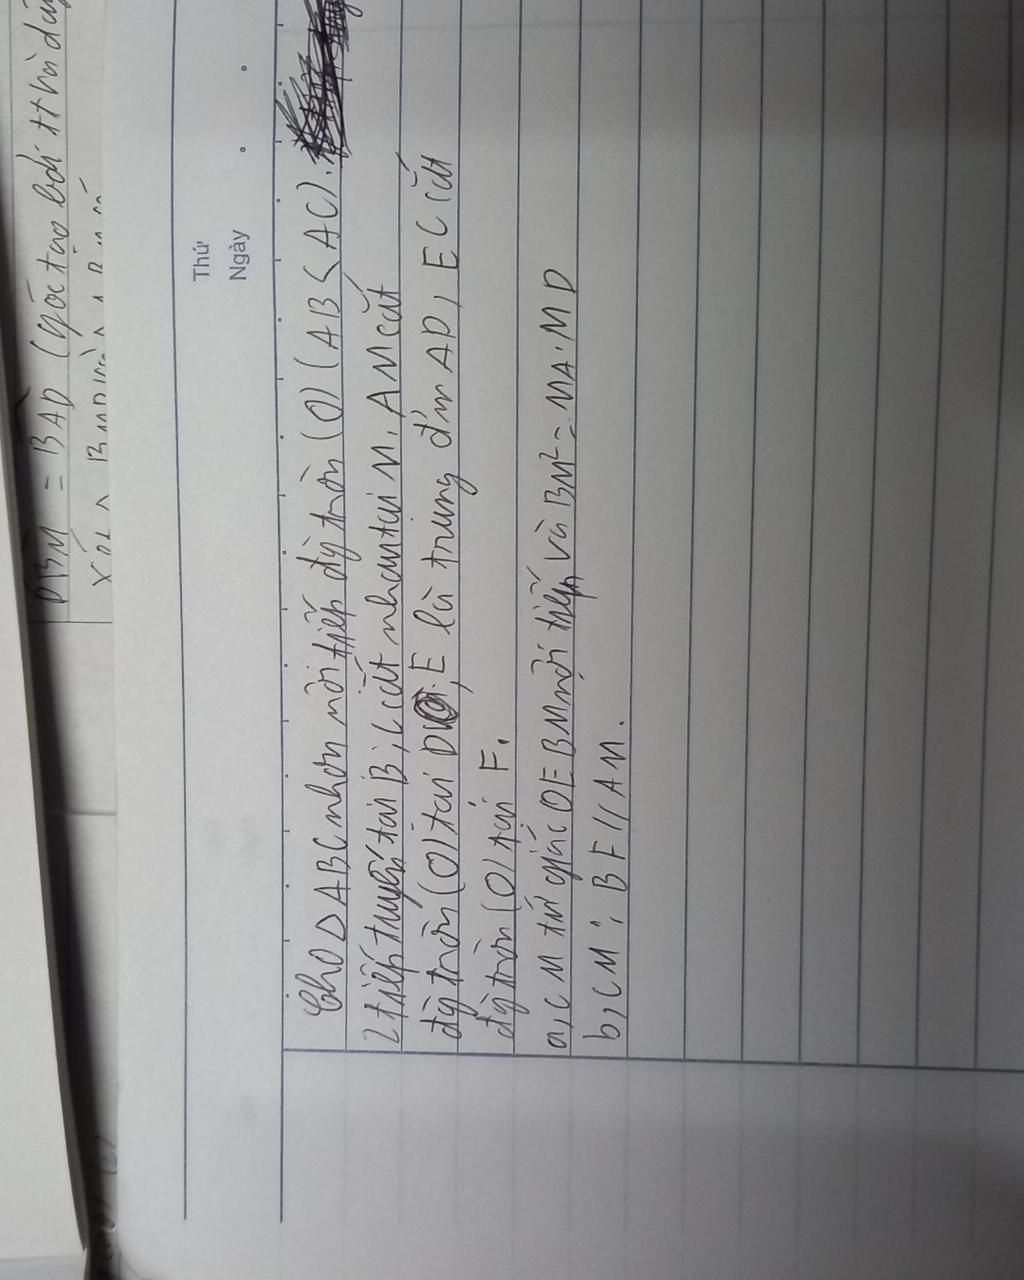 DBM = BAD (góc tạo bởi tt và dây
Xét ∆ BMD và ∆
Thứ
Ngày
Cho ∆ABC nhọn nội tiếp đg tròn (O) (AB < AC).
2 tiếp tuyến tại B, C cắt nhau tại M. AM cắt
đg tròn (O) tại D, E là trung đ'm AD, EC cắt
đg tròn (O) tại F.
a, CM tứ giác OEBM nội tiếp và BM² = MA.MD
b, CM : BF // AM.